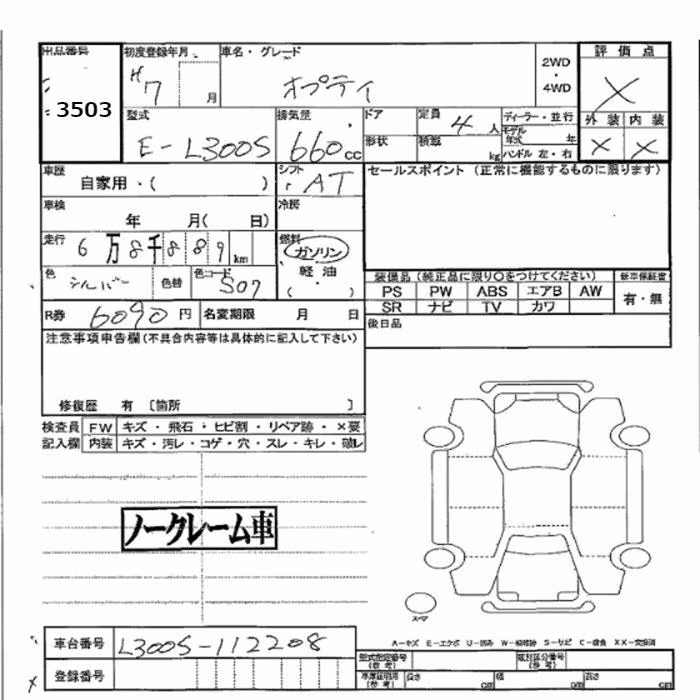 出品番号 初度登録年月 車名・グレード 2WD・4WD 評価点
3503 H7 月 オプティ X
型式 排気量 ドア 定員 4 人 ディーラー・並行 外装 内装
E-L300S 660 cc 形状 積載 kg モデル年式 年 ハンドル 左・右 X X
車歴 シフト セールスポイント (正常に機能するものに限ります)
自家用・( ) AT
車検 年 月( 日) 冷房
走行 6万8千889 km 燃料 ガソリン
軽油
( ・ )
色 シルバー 色替 色コード S07
装備品 (純正品に限り○をつけてください) 新車保証書
PS PW ABS エアB AW 有・無
SR ナビ TV カワ
R券 6090 円 名変期限 月 日
後日品
注意事項申告欄(不具合内容等は具体的に記入して下さい)
修復歴 有 〔箇所 〕
検査員 FW キズ・飛石・ヒビ割・リペア跡・×要
記入欄 内装 キズ・汚レ・コゲ・穴・スレ・キレ・破レ
ノークレーム車
スペア
A−キズ E−エクボ U−凹み W−補修跡 S−サビ C−腐食 XX−交換済
車台番号 L300S-112208
型式指定番号(参考) 類別区分番号(参考)
登録番号
車庫証明用(参考) 長さ cm 幅 cm 高さ cm